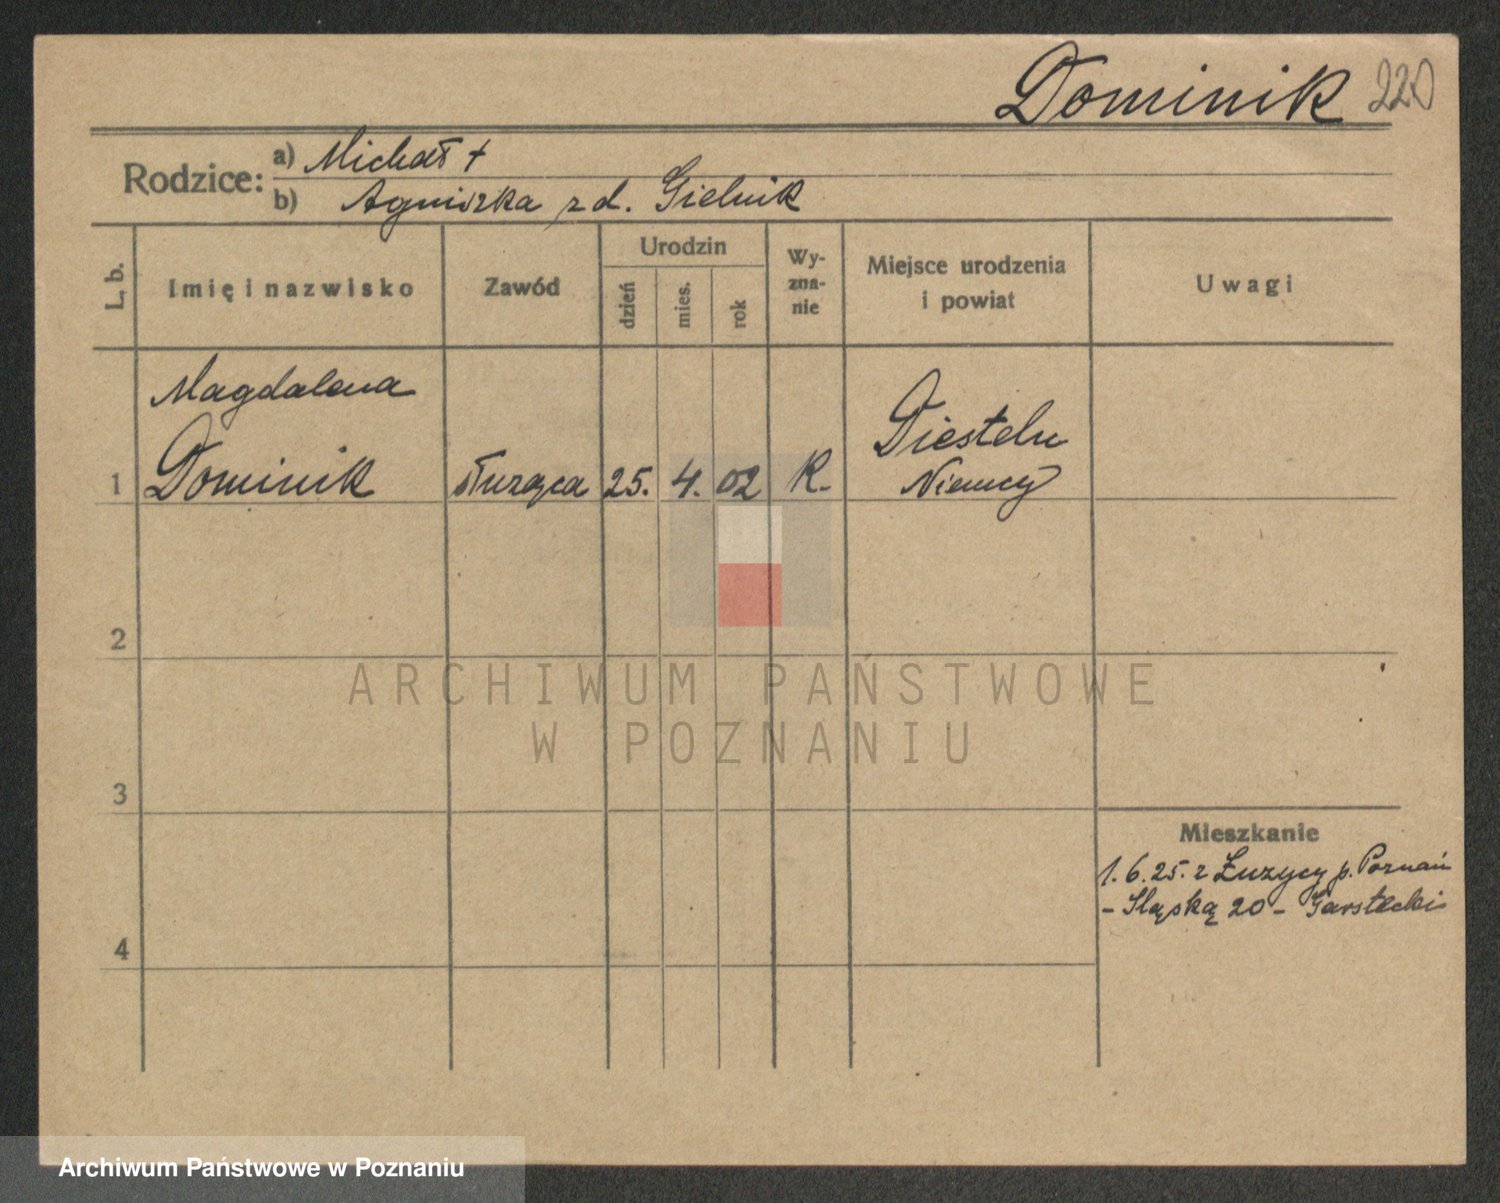 Dominik 220
Rodzice: a) Michał +
b) Agniszka z d. Gielnik
L. b.
Imię i nazwisko
Zawód
Urodzin
dzień
mies.
rok
Wy-
zna-
nie
Miejsce urodzenia
i powiat
Uwagi
Magdalena
1 Dominik służąca 25. 4. 02 K. Diesteln
Niemcy
2
ARCHIWUM PAŃSTWOWE
W POZNANIU
3
Mieszkanie
1.6.25. z Łuzycy p. Poznań
- Śląska 20 - Garstecki
4
Archiwum Państwowe w Poznaniu